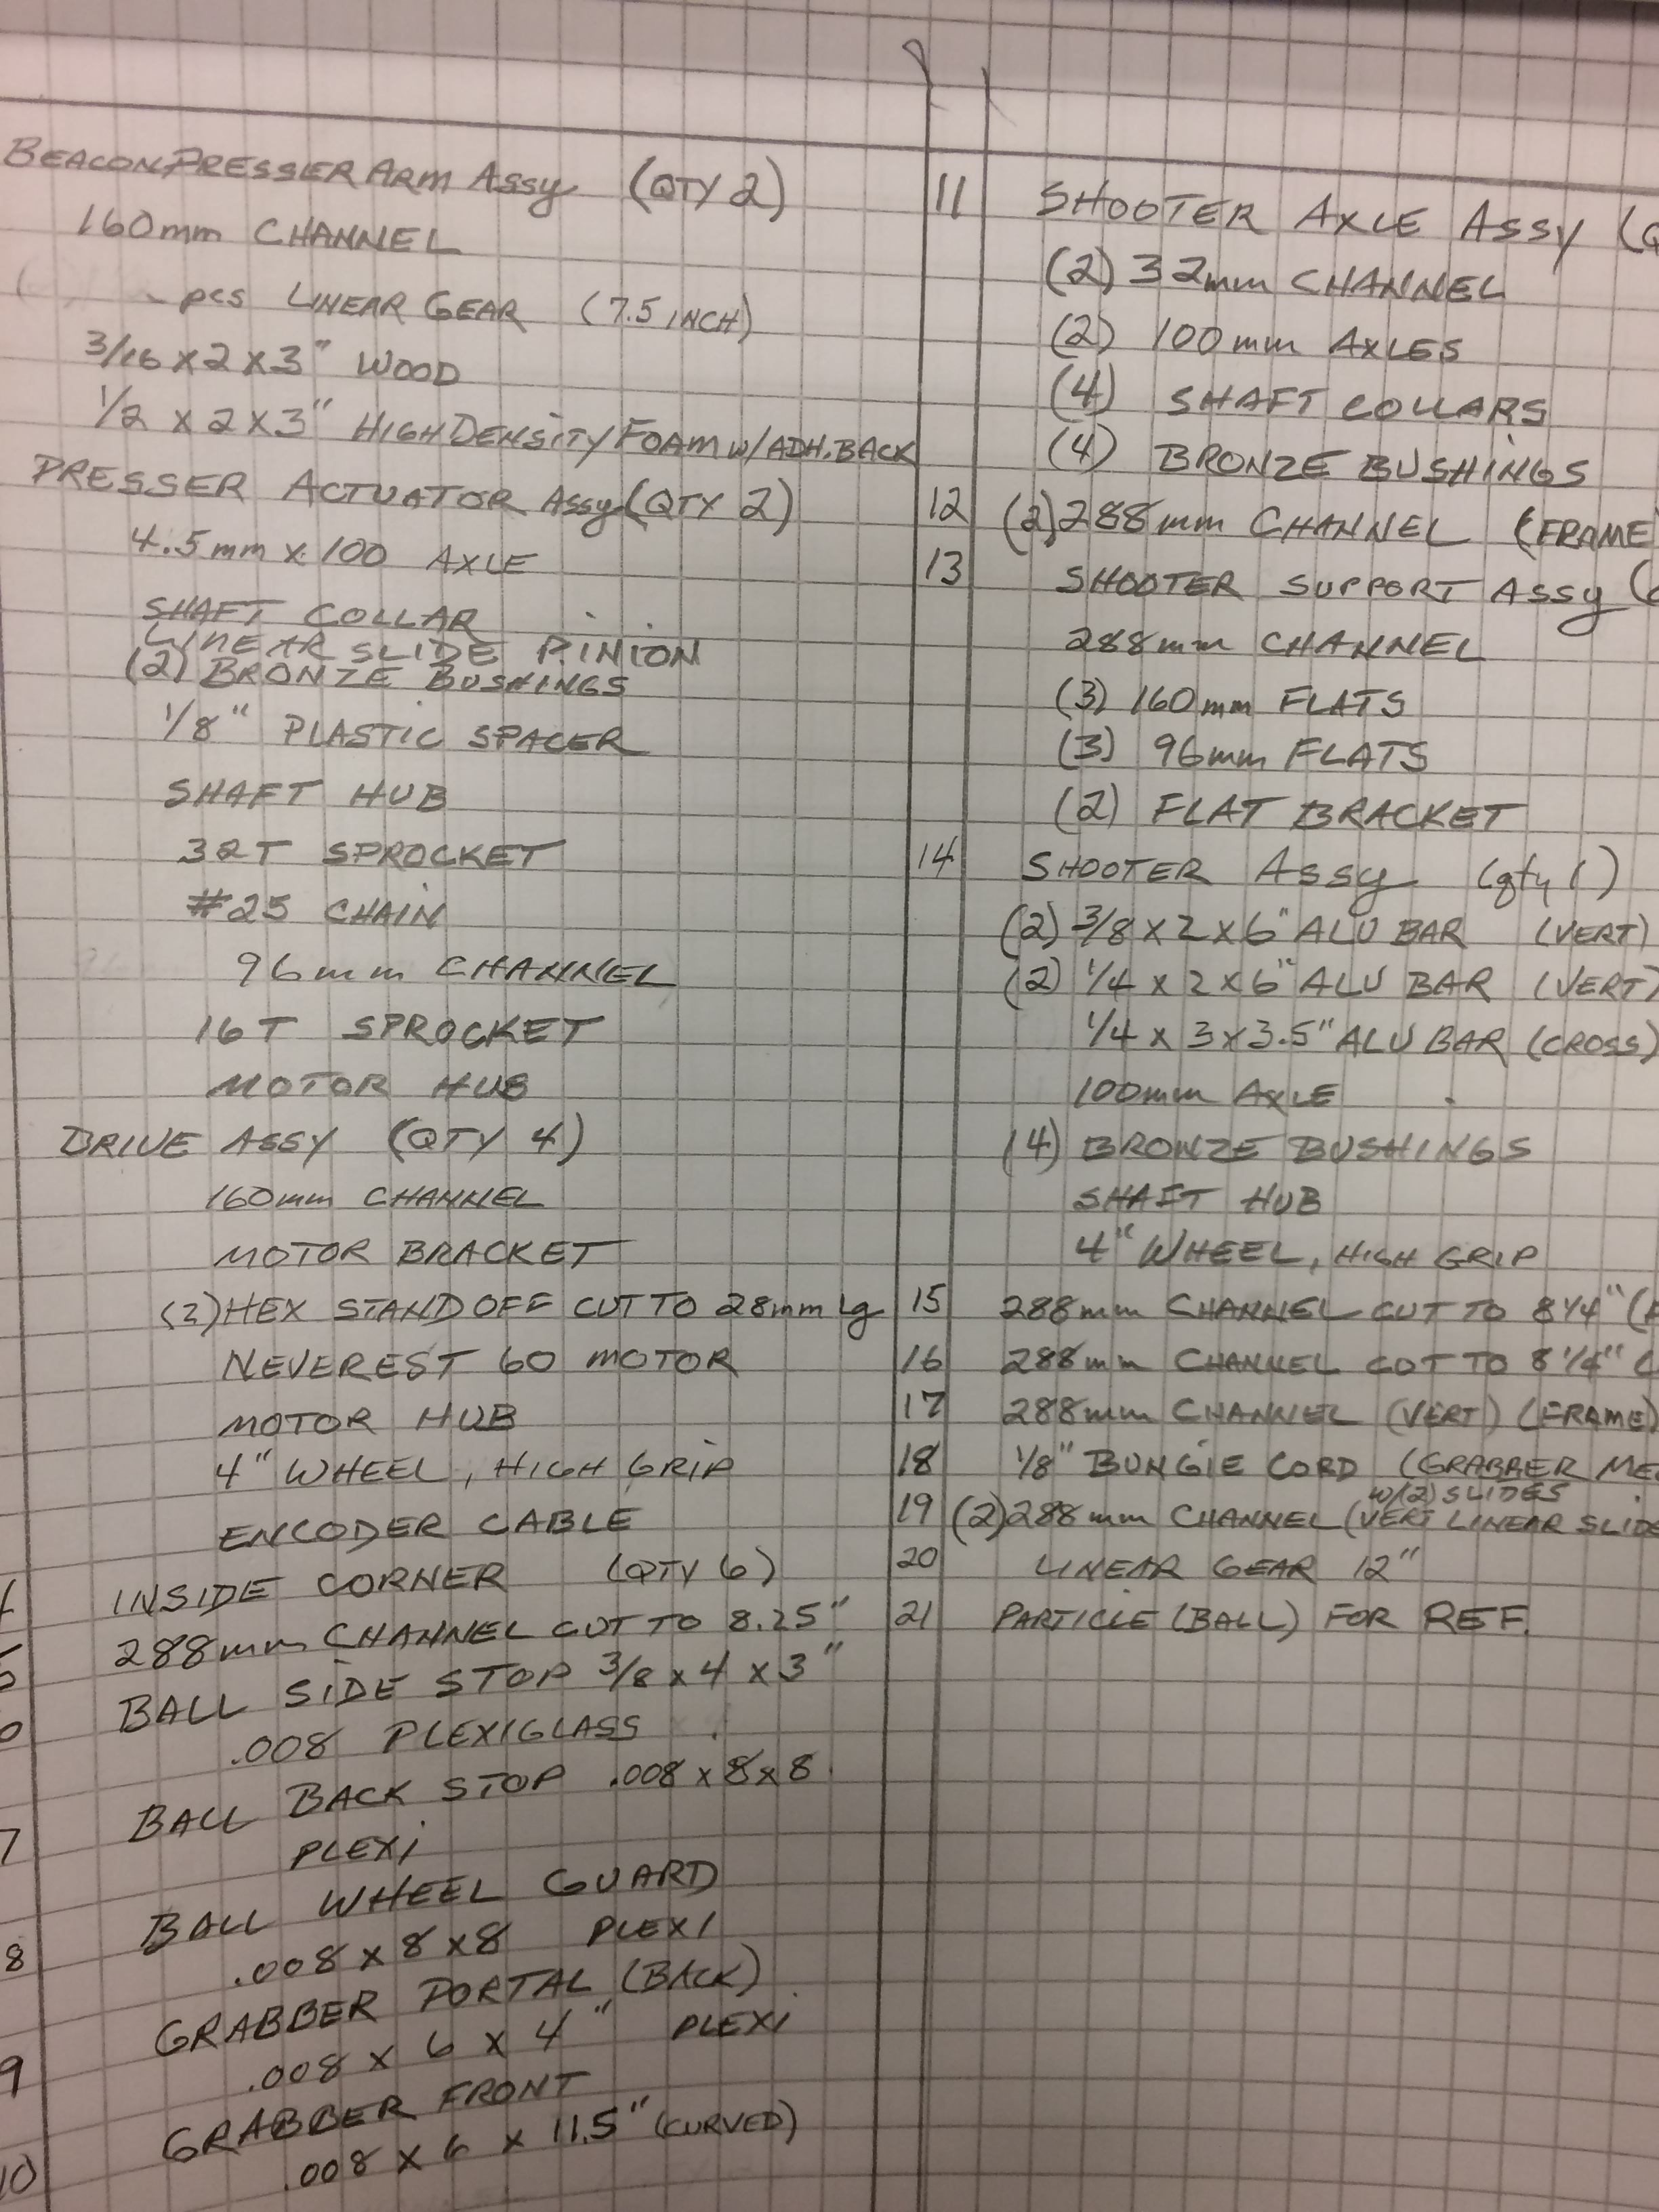 BEACON PRESSER ARM ASSY (QTY 2)
160mm CHANNEL
pcs LINEAR GEAR (7.5 INCH)
3/16 x 2 x 3" WOOD
1/2 x 2 x 3" HIGH DENSITY FOAM W/ADH. BACK
PRESSER ACTUATOR ASSY (QTY 2)
4.5mm x 100 AXLE
SHAFT COLLAR
LINEAR SLIDE PINION
(2) BRONZE BUSHINGS
1/8" PLASTIC SPACER
SHAFT HUB
32T SPROCKET
#25 CHAIN
96mm CHANNEL
16T SPROCKET
MOTOR HUB
DRIVE ASSY (QTY 4)
160mm CHANNEL
MOTOR BRACKET
(2) HEX STANDOFF CUT TO 28mm Lg
NEVEREST 60 MOTOR
MOTOR HUB
4" WHEEL, HIGH GRIP
ENCODER CABLE
INSIDE CORNER (QTY 6)
288mm CHANNEL CUT TO 8.25"
BALL SIDE STOP 3/8 x 4 x 3"
.008 PLEXIGLASS
7 BALL BACK STOP .008 x 8 x 8
PLEXI
8 BALL WHEEL GUARD
.008 x 8 x 8 PLEXI
9 GRABBER PORTAL (BACK)
.008 x 6 x 4" PLEXI
10 GRABBER FRONT
.008 x 6 x 11.5" (CURVED)
11 SHOOTER AXLE ASSY (Q
(2) 32mm CHANNEL
(2) 100mm AXLES
(4) SHAFT COLLARS
(4) BRONZE BUSHINGS
12 (2) 288mm CHANNEL (FRAME
13 SHOOTER SUPPORT ASSY (
288mm CHANNEL
(3) 160mm FLATS
(3) 96mm FLATS
(2) FLAT BRACKET
14 SHOOTER ASSY (qty 1)
(2) 3/8 x 2 x 6" ALU BAR (VERT)
(2) 1/4 x 2 x 6" ALU BAR (VERT)
1/4 x 3 x 3.5" ALU BAR (CROSS)
100mm AXLE
(4) BRONZE BUSHINGS
SHAFT HUB
4" WHEEL, HIGH GRIP
15 288mm CHANNEL CUT TO 8 1/4" (
16 288mm CHANNEL CUT TO 8 1/4" (
17 288mm CHANNEL (VERT) (FRAME)
18 1/8" BUNGIE CORD (GRABBER ME
w/(2) SLIDES
19 (2) 288mm CHANNEL (VERT LINEAR SLIDE
20 LINEAR GEAR 12"
21 PARTICLE (BALL) FOR REF.